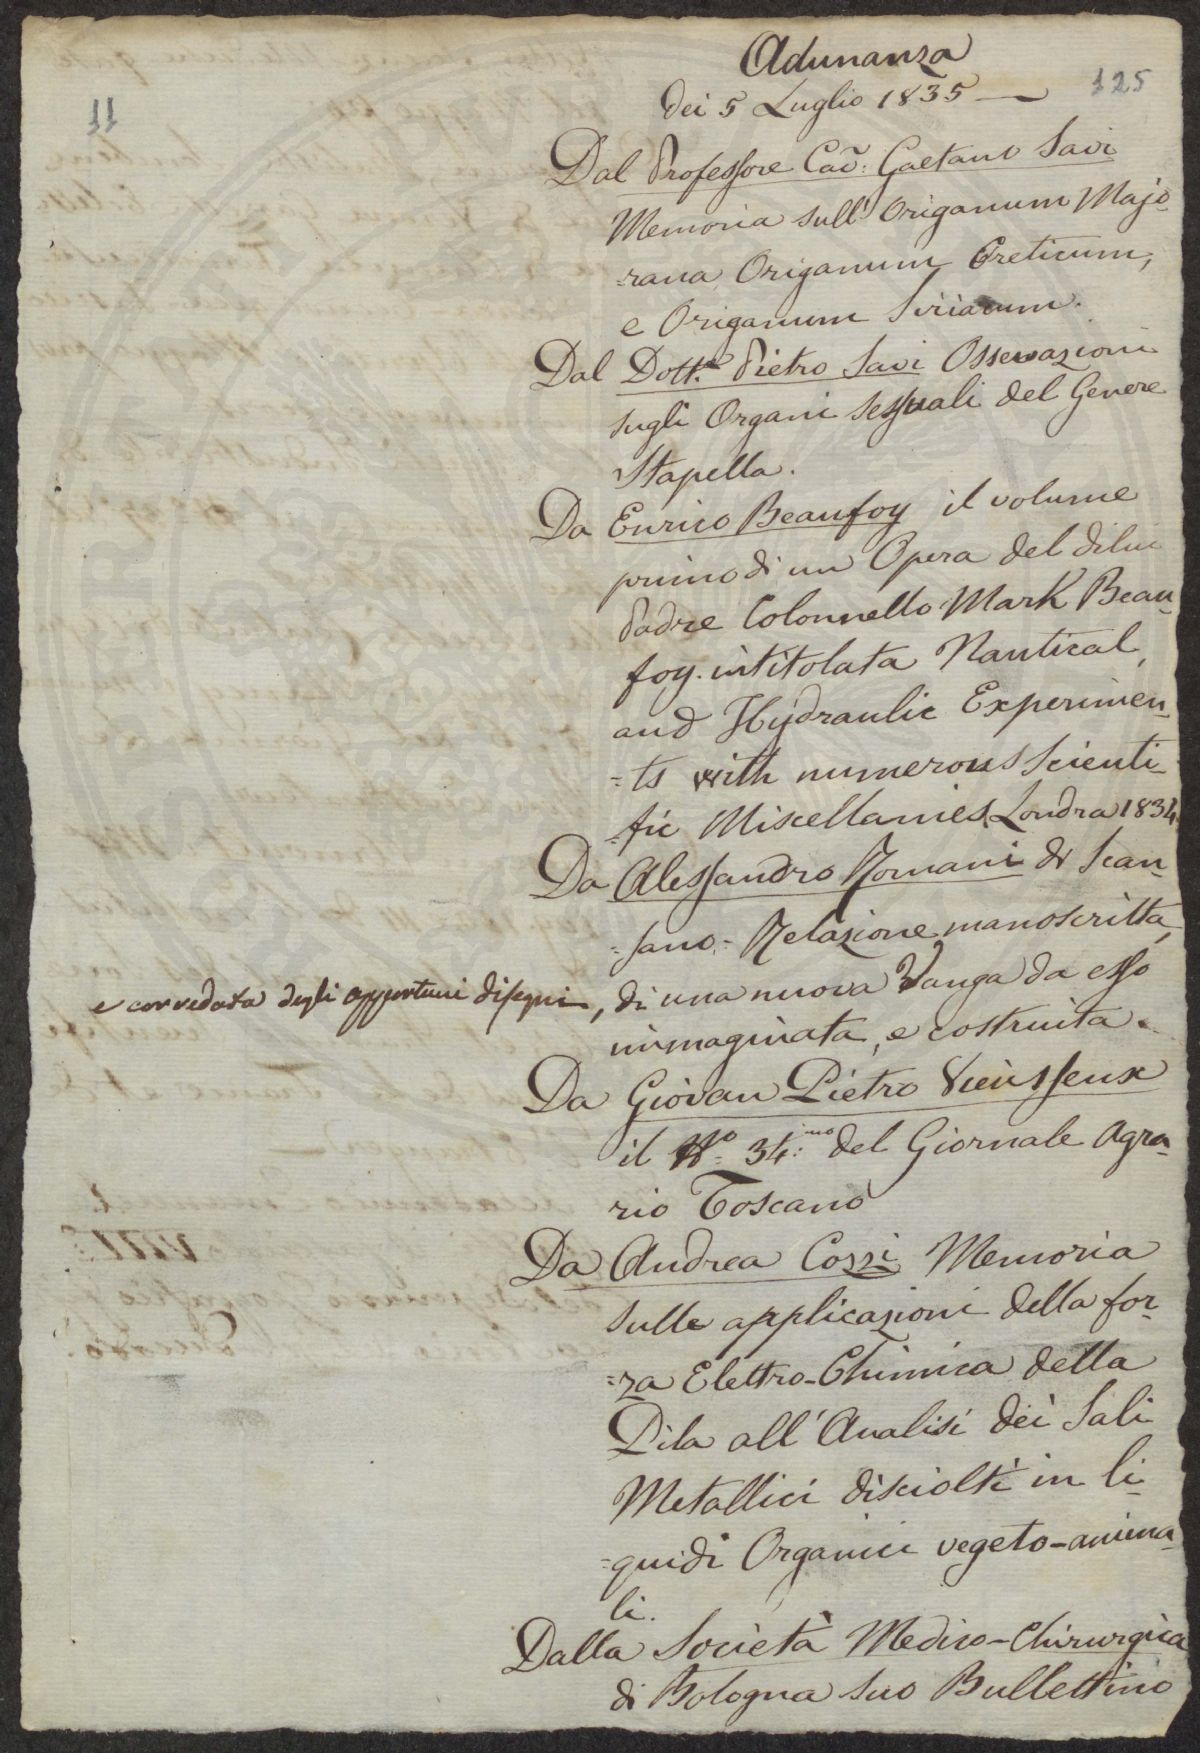 Adunanza
dei 5 Luglio 1835 —
125
11
Dal Professore Cav: Gaetano Savi
Memoria sull' Origanum Majo-
=rana, Origanum Creticum,
e Origanum Siriacum.
Dal Dott.r Pietro Savi Osservazioni
sugli Organi sessuali del Genere
Stapella.
Da Enrico Beaufoy il volume
primo di un Opera del dilui
Padre Colonnello Mark Beau-
foy. intitolata Nautical,
and Hydraulic Experimen-
=ts with numerous scienti-
=fic Miscellanies, Londra 1834
Da Alessandro Romani di Scan-
=sano = Relazione manoscritta,
e corredata degli opportuni disegni, di una nuova Vanga da esso
immaginata, e costruita.
Da Giovan Pietro Vieusseux
il N.o 34:mo del Giornale Agra-
rio Toscano
Da Andrea Cozzi Memoria
sulle applicazioni della for-
=za Elettro-Chimica della
Pila all' Analisi dei Sali
Metallici disciolti in li-
=quidi Organici vegeto-anima-
li.
Dalla Società Medico-Chirurgica
di Bologna suo Bullettino